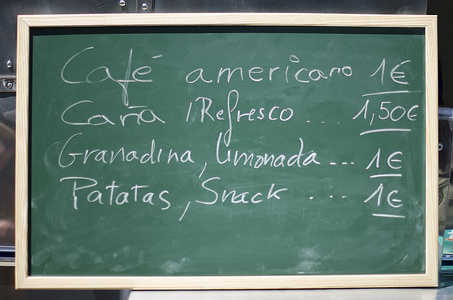 Café americano 1€
Caña / Refresco ... 1,50€
Granadina, limonada ... 1€
Patatas, Snack .... 1€